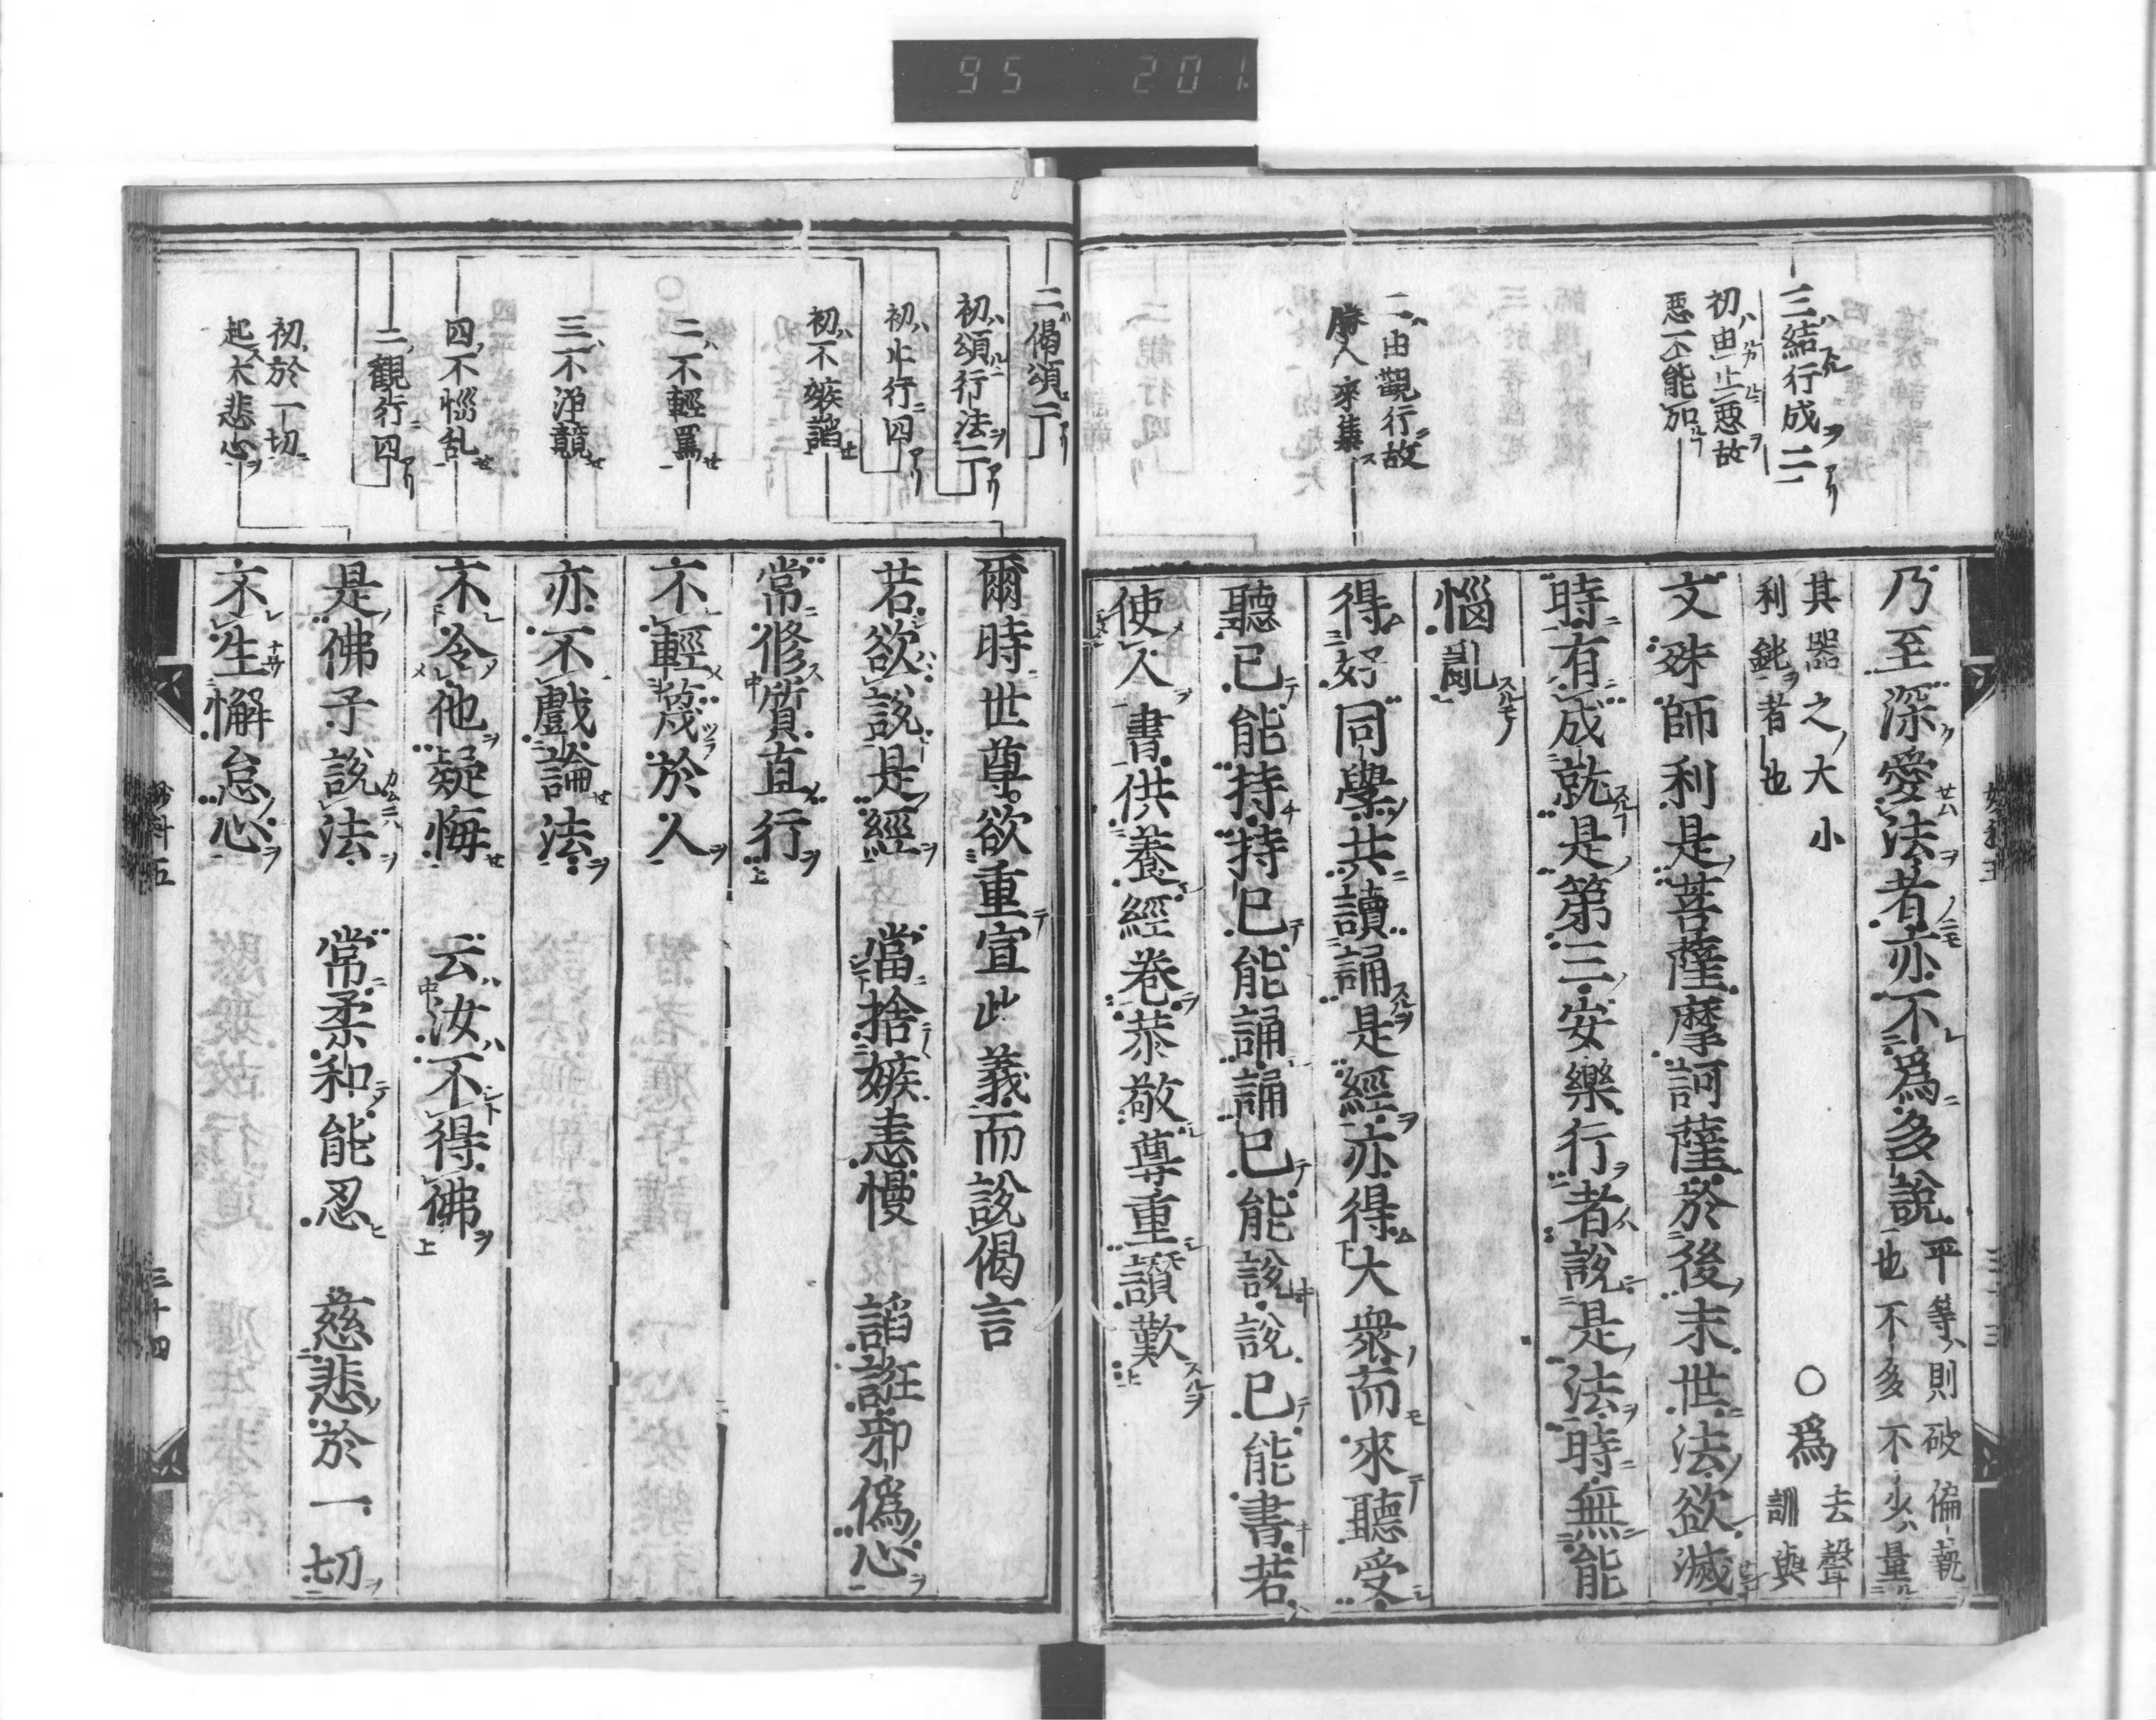 95 201
三結行成二
初由止惡故
惡不能加
二由觀行故
勝人來集
乃至深愛法者亦不爲多說
平等則破偏執
也不多不少量
其器之大小
利鈍者也
○爲
去聲
訓與
文殊師利是菩薩摩訶薩於後末世法欲滅
時有成就是第三安樂行者說是法時無能
惱亂
得好同學共讀誦是經亦得大衆而來聽受
聽已能持持已能誦誦已能說說已能書若
使人書供養經卷恭敬尊重讚歎
二偈頌二
初頌行法二
初止行四
初不嫉諂
二不輕罵
三不諍競
四不惱乱
二觀行四
初於一切
起大悲心
爾時世尊欲重宣此義而說偈言
若欲說是經 當捨嫉恚慢 諂誑邪僞心
常修質直行
不輕蔑於人
亦不戲論法
不令他疑悔 云汝不得佛
是佛子說法 常柔和能忍 慈悲於一切
不生懈怠心
三十四